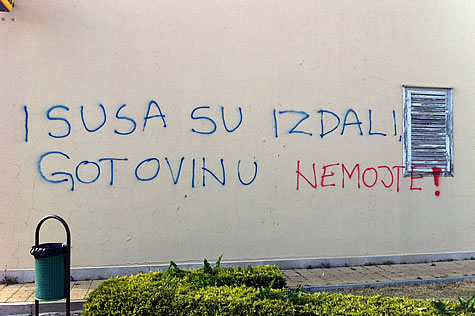 ISUSA SU IZDALI,
GOTOVINU NEMOJTE!